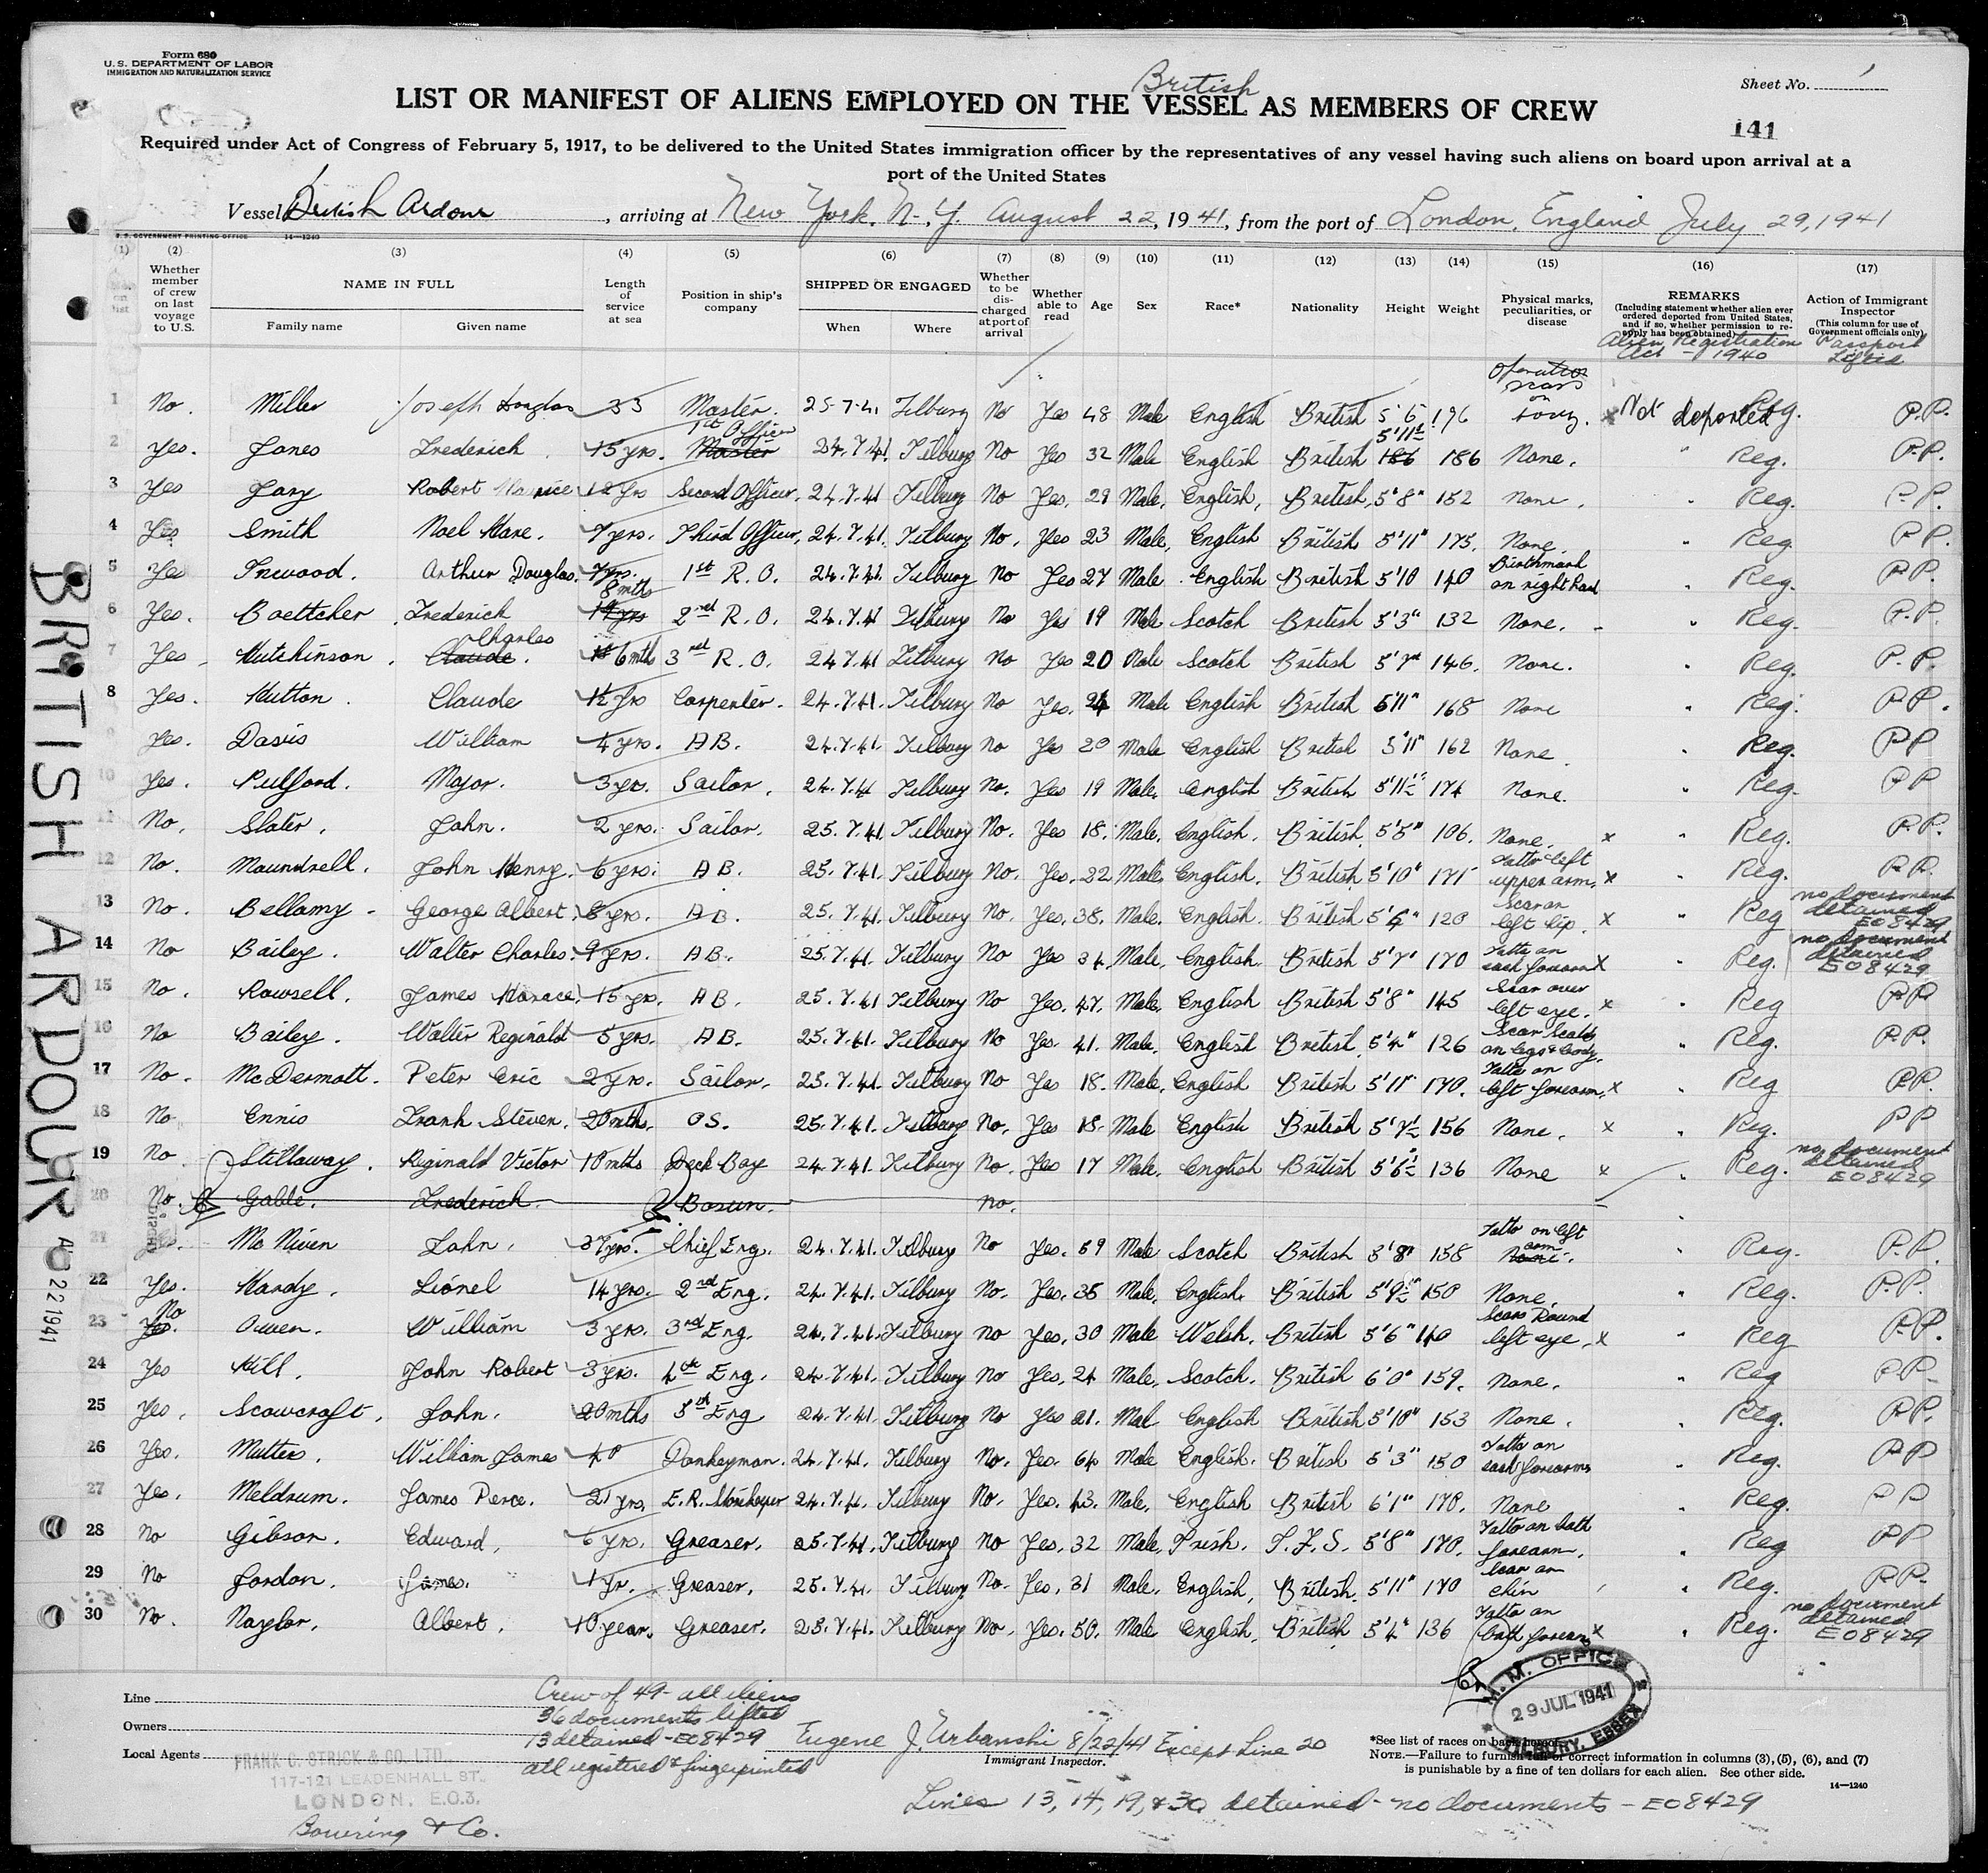 Form 680
U. S. DEPARTMENT OF LABOR
IMMIGRATION AND NATURALIZATION SERVICE
Sheet No. 1
British
LIST OR MANIFEST OF ALIENS EMPLOYED ON THE VESSEL AS MEMBERS OF CREW
141
Required under Act of Congress of February 5, 1917, to be delivered to the United States immigration officer by the representatives of any vessel having such aliens on board upon arrival at a
port of the United States
Vessel British Ardour, arriving at New York, N.Y. August 22, 1941, from the port of London, England July 29, 1941
U. S. GOVERNMENT PRINTING OFFICE 14—1240
(1) (2) (3) (4) (5) (6) (7) (8) (9) (10) (11) (12) (13) (14) (15) (16) (17)
Whether member of crew on last voyage to U.S.
NAME IN FULL
Family name Given name
Length of service at sea
Position in ship's company
SHIPPED OR ENGAGED
When Where
Whether to be discharged at port of arrival
Whether able to read
Age Sex Race* Nationality Height Weight
Physical marks, peculiarities, or disease
REMARKS
(Including statement whether alien ever ordered deported from United States, and if so, whether permission to re-apply has been obtained)
Alien Registration Act - 1940
Action of Immigrant Inspector
(This column for use of Government officials only)
Passport Lifted
1 No. Miller Joseph Douglas 33 Master. 25-7-41 Tilbury No Yes 48 Male English British 5'6 196 Operation scars on body. x Not deported Reg. P.P.
2 Yes. Jones Frederick 15 yrs. 1st Officer Master 24.7.41 Tilbury No Yes 32 Male English British 5'11½ 186 186 None. " Reg. P.P.
3 Yes Jary Robert Maurice 12 yrs Second Officer. 24.7.41 Tilbury No Yes. 29 Male. English, British, 5'8" 152 None. " Reg. P.P.
4 Yes Smith Noel Hare. 7 yrs. Third Officer, 24.7.41. Tilbury No. Yes 23 Male, English British 5'11" 175. None. " Reg P.P.
5 Yes Inwood. Arthur Douglas. 7 yrs. 1st R.O. 24.7.41. Tilbury No Yes 27 Male. English British 5'10 140 Birthmark on right hand " Reg. P.P.
6 Yes. Boettcher Frederick 8 mths 2nd R.O. 24.7.41 Tilbury No Yes 19 Male Scotch British 5'3" 132 None. " Reg. P.P.
7 Yes Hutchinson. Charles Claude. 6 mths 3rd R.O. 24 7.41 Tilbury No Yes 20 Male Scotch British 5'7" 146. None. " Reg. P.P.
8 Yes. Hutton. Claude 1½ yrs Carpenter. 24.7.41. Tilbury No Yes. 24 Male English British 5'11" 168 None " Reg. P.P.
9 Yes. Davis William 4 yrs. A.B. 24.7.41 Tilbury No Yes 20 Male English British 5'11" 162 None. " Reg. P.P
10 Yes. Pulford. Major. 3 yrs. Sailor. 24.7.41 Tilbury No. Yes 19 Male. English British 5'11½ 174 None. " Reg. P.P
11 No. Slater. John. 2 yrs. Sailor. 25.7.41. Tilbury No. Yes 18. Male. English. British. 5'5" 106. None. x " Reg. P.P.
12 No. Maundrell. John Henry. 6 yrs. A.B. 25.7.41. Tilbury No. Yes. 22 Male. English. British 5'10" 171 Tatto left upper arm. x " Reg. P.P.
13 No. Bellamy George Albert. 8 yrs. A.B. 25.7.41. Tilbury No. Yes. 38. Male. English. British 5'6" 120 Scar on left lip. x " Reg no document detained E08429
14 No Bailey. Walter Charles. 9 yrs. A.B. 25.7.41. Tilbury No Yes 34. Male. English. British 5'7" 170 Tatto on each forearm x " Reg. no document detained E08429
15 No. Rowsell. James Horace. 15 yrs. A.B. 25.7.41 Tilbury No Yes. 47. Male. English British 5'8" 145 Scar over left eye. x " Reg P.P
16 No Bailey. Walter Reginald 5 yrs. A.B. 25.7.41. Tilbury No Yes. 41. Male. English British 5'4" 126 Scar Scalds on legs & body. " Reg. P.P.
17 No. McDermott. Peter Eric 2 yrs. Sailor. 25.7.41. Tilbury No Yes 18. Male. English British 5'11" 170. Tatto on left forearm. x " Reg P.P.
18 No Ennis Frank Steven. 20 mths. O.S. 25.7.41. Tilbury No. Yes 18. Male English British 5'7½ 156 None. x " Reg. P.P
19 No Stillaway. Reginald Victor 10 mths Deck Boy 24.7.41. Tilbury No. Yes 17 Male. English British 5'6½ 136 None x Reg. no document detained E08429
20 No. Gable. Frederick. Bosun. No.
21 Yes. Mc Niven John. 37 yrs. Chief Eng. 24.7.41. Tilbury No Yes. 59 Male Scotch British 5'8" 158 Tatto on left arm None. " Reg. P.P.
22 Yes. Hardy. Lionel 14 yrs. 2nd Eng. 24.7.41. Tilbury No. Yes. 35 Male. English. British 5'9½" 150 None. " Reg. P.P.
23 No Yes. Owen. William 3 yrs. 3rd Eng. 24.7.41. Tilbury No Yes. 30 Male Welsh. British 5'6" 140 Scars Round left eye. x " Reg P.P.
24 Yes Hill. John Robert 3 yrs. 4th Eng. 24.7.41. Tilbury No Yes. 24 Male. Scotch. British 6'0" 159. None. " Reg P.P.
25 Yes. Scowcroft. John. 20 mths 5th Eng 24.7.41. Tilbury No Yes 21. Mal English British 5'10" 153 None. " Reg. P.P.
26 Yes. Mutter. William James 40 Donkeyman. 24.7.41. Tilbury No. Yes. 64 Male English. British 5'3" 150 Tatto on each forearms " Reg. P.P
27 Yes. Meldrum. James Perce. 21 yrs. E.R. Storekeeper 24.7.41. Tilbury No. Yes. 43. Male. English British 6'1" 170. None " Reg. P P
28 No Gibson. Edward. 6 yrs. Greaser. 25.7.41. Tilbury No Yes. 32 Male. Irish. I.F.S. 5'8" 170. Tatto on both forearm. " Reg P P
29 No Jordon. James. 1 yr. Greaser. 25.7.41. Tilbury. No. Yes. 31 Male. English, British. 5'11" 170 Scar on chin " Reg. P.P.
30 No. Naylor. Albert. 10 year. Greaser. 25.7.41. Tilbury No. Yes. 50. Male English. British 5'4" 136 Tatto on both forearm x " Reg. no document detained E08429
BRITISH ARDOUR
AUG 22 1941
Line
Owners
Local Agents
FRANK C. STRICK & CO. LTD.
117-121 LEADENHALL ST.,
LONDON. E.C.3.
Bowring & Co.
Crew of 49 - all aliens
36 documents lifted
13 detained - E08429
all registered & fingerprinted
Eugene J. Urbanski 8/22/41 Except Line 20
Immigrant Inspector.
Lines 13, 14, 19, & 30 detained - no documents - E08429
M. M. OFFICE
29 JUL 1941
TILBURY, ESSEX
*See list of races on back hereof.
NOTE.—Failure to furnish full or correct information in columns (3), (5), (6), and (7)
is punishable by a fine of ten dollars for each alien. See other side.
14—1240